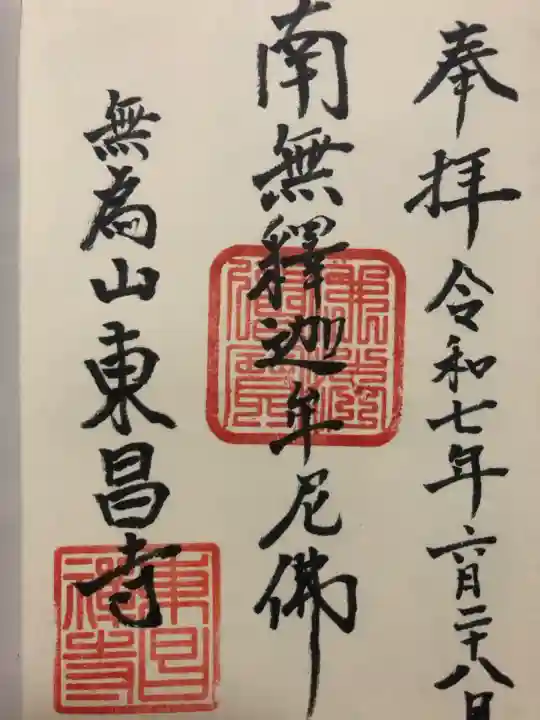 奉拝 令和七年六月二十八日
南無釋迦牟尼佛
無為山東昌寺
東昌禅寺